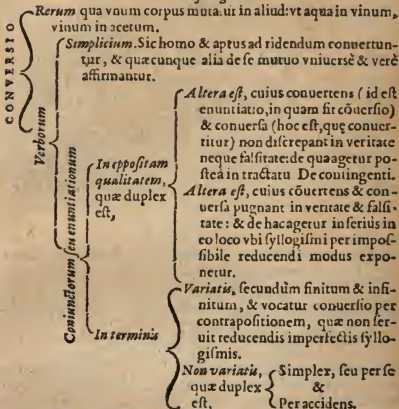 CONVERSIO
Rerum qua vnum corpus mutatur in aliud: vt aqua in vinum,
vinum in acetum.
Verborum
Simplicium. Sic homo & aptus ad ridendum conuertun-
tur, & quæcunque alia de se mutuo vniuersè & verè
affirmantur.
Coniunctorum seu enuntiationum
In oppositam
qualitatem,
quæ duplex
est,
Altera est, cuius conuertens (id est
enuntiatio, in quam fit cōuersio)
& conuersa (hoc est, quę conuer-
titur) non discrepant in veritate
neque falsitate: de qua agetur po-
steà in tractatu De contingenti.
Altera est, cuius cōuertens & con-
uersa pugnant in veritate & falsi-
tate: & de hac agetur inferiùs in
eo loco vbi syllogismi per impos-
sibile reducendi modus expo-
netur.
In terminis
Variatis, secundùm finitum & infi-
nitum, & vocatur conuersio per
contrapositionem, quæ non ser-
uit reducendis imperfectis syllo-
gismis.
Non variatis,
quæ duplex
est,
Simplex, seu per se
&
Per accidens.